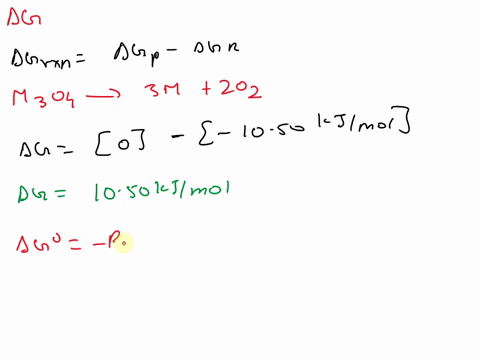 ΔG
ΔGrxn = ΔGp - ΔGR
M3O4 → 3M + 2O2
ΔG = [0] - {-10.50 kJ/mol}
ΔG = 10.50 kJ/mol
ΔG° = -R